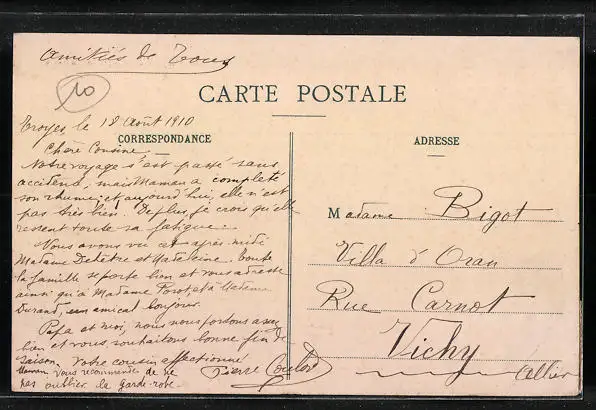 Amitiés de Tous
10
CARTE POSTALE
Troyes, le 18 Août 1910
CORRESPONDANCE
Chère Cousine,
Notre voyage s'est passé sans
accident, mais Maman a complété
son rhume; et aujourd'hui, elle n'est
pas très bien. De plus, je crois qu'elle
ressent toute sa fatigue.
Nous avons vu cet après-midi
Madame Deletre et Madeleine. Toute
la famille se porte bien et vous adresse
ainsi qu'à Madame et à Madame
Durand, un amical bonjour.
Papa et moi, nous nous portons assez
bien et vous souhaitons bonne fin de
saison. Votre cousin affectionné
Maman vous recommande de ne
pas oublier la garde-robe.
Pierre
ADRESSE
Madame Bigot
Villa d'Oran
Rue Carnot
Vichy
Allier